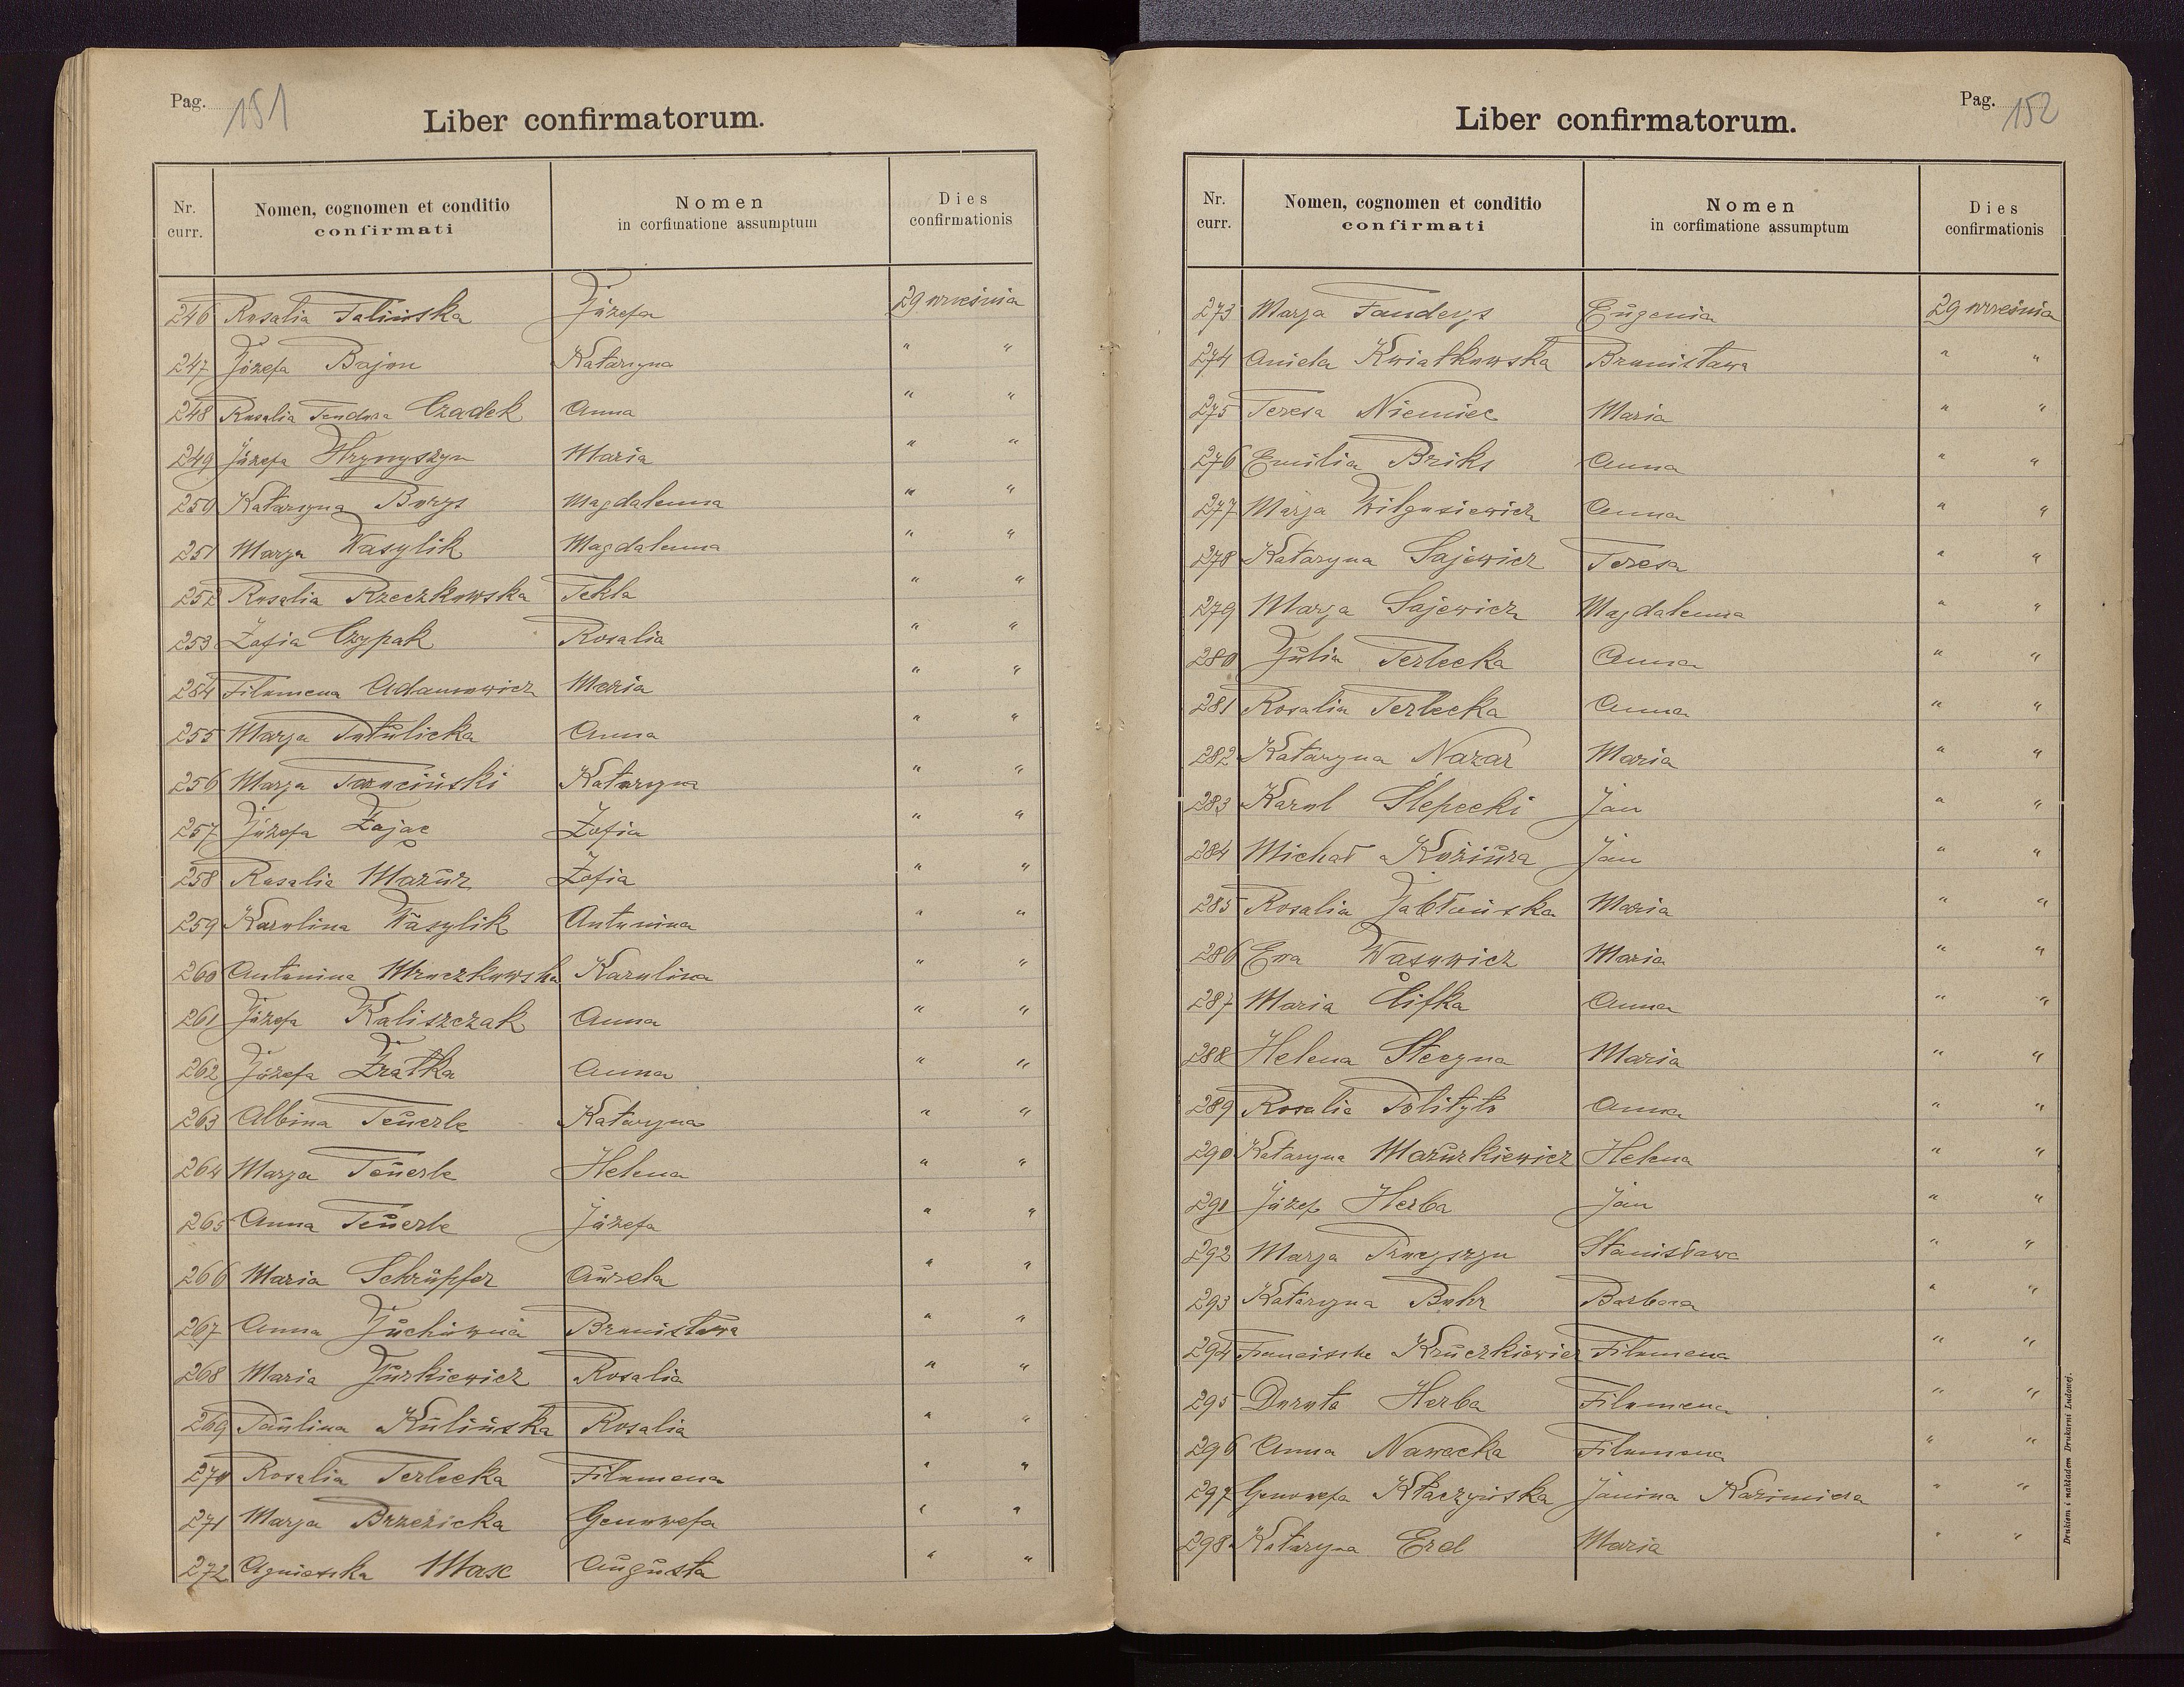 Pag. 151
Liber confirmatorum.
Nr. curr. Nomen, cognomen et conditio confirmati Nomen in corfimatione assumptum Dies confirmationis
246 Rosalia Talińska Józefa 29 września
247 Józefa Bajon Katarzyna " "
248 Rosalia Teodora Czadek Anna " "
249 Józefa Hrynyszyn Maria " "
250 Katarzyna Borys Magdalenna " "
251 Marya Wasylik Magdalenna " "
252 Rosalia Rzeczkowska Tekla " "
253 Zofia Czypak Rosalia " "
254 Filomena Adamowicz Maria " "
255 Marya Tutulicka Anna " "
256 Marya Katarzyna " "
257 Józefa Zając Zofia " "
258 Rosalia Mazur Zofia " "
259 Karolina Wasylik Antonina " "
260 Antonina Mroczkowska Karolina " "
261 Józefa Kaliszczak Anna " "
262 Józefa Zratka Anna " "
263 Albina Teuerle Katarzyna " "
264 Marya Teuerle Helena " "
265 Anna Teuerle Józefa " "
266 Maria Schrüpfer Aurela " "
267 Anna Juchowna Bronisława " "
268 Maria Jurkiewicz Rosalia " "
269 Paulina Kulińska Rosalia " "
270 Rosalia Terlecka Filomena " "
271 Marya Brzezicka Genowefa " "
272 Agnieszka Masc Augusta " "
Pag. 152
Liber confirmatorum.
Nr. curr. Nomen, cognomen et conditio confirmati Nomen in corfimatione assumptum Dies confirmationis
273 Marya Fanderys Eugenia 29 września
274 Aniela Kwiatkowska Bronisława " "
275 Teresa Niemiec Maria " "
276 Emilia Briks Anna " "
277 Marya Wilgusiewicz Anna " "
278 Kataryna Sajewicz Teresa " "
279 Marya Sajewicz Magdalenna " "
280 Julia Terlecka Anna " "
281 Rosalia Terlecka Anna " "
282 Kataryna Nazar Maria " "
283 Karol Ślepecki Jan " "
284 Michał Koziura Jan " "
285 Rosalia Jabłońska Maria " "
286 Ewa Wasowicz Maria " "
287 Maria Čifka Anna " "
288 Helena Stecyna Maria " "
289 Rosalia Polityło Anna " "
290 Kataryna Mazurkiewicz Helena " "
291 Józef Herba Jan " "
292 Marya Procyszyn Stanisława " "
293 Katarzyna Bohr Barbara " "
294 Franciszka Kruczkiewicz Filomena " "
295 Dorota Herba Filomena " "
296 Anna Nawacka Filomena " "
297 Genowefa Kłaczyńska Janina Kazimiera " "
298 Kataryna Erd Maria " "
Drukiem i nakładem Drukarni Ludowej.